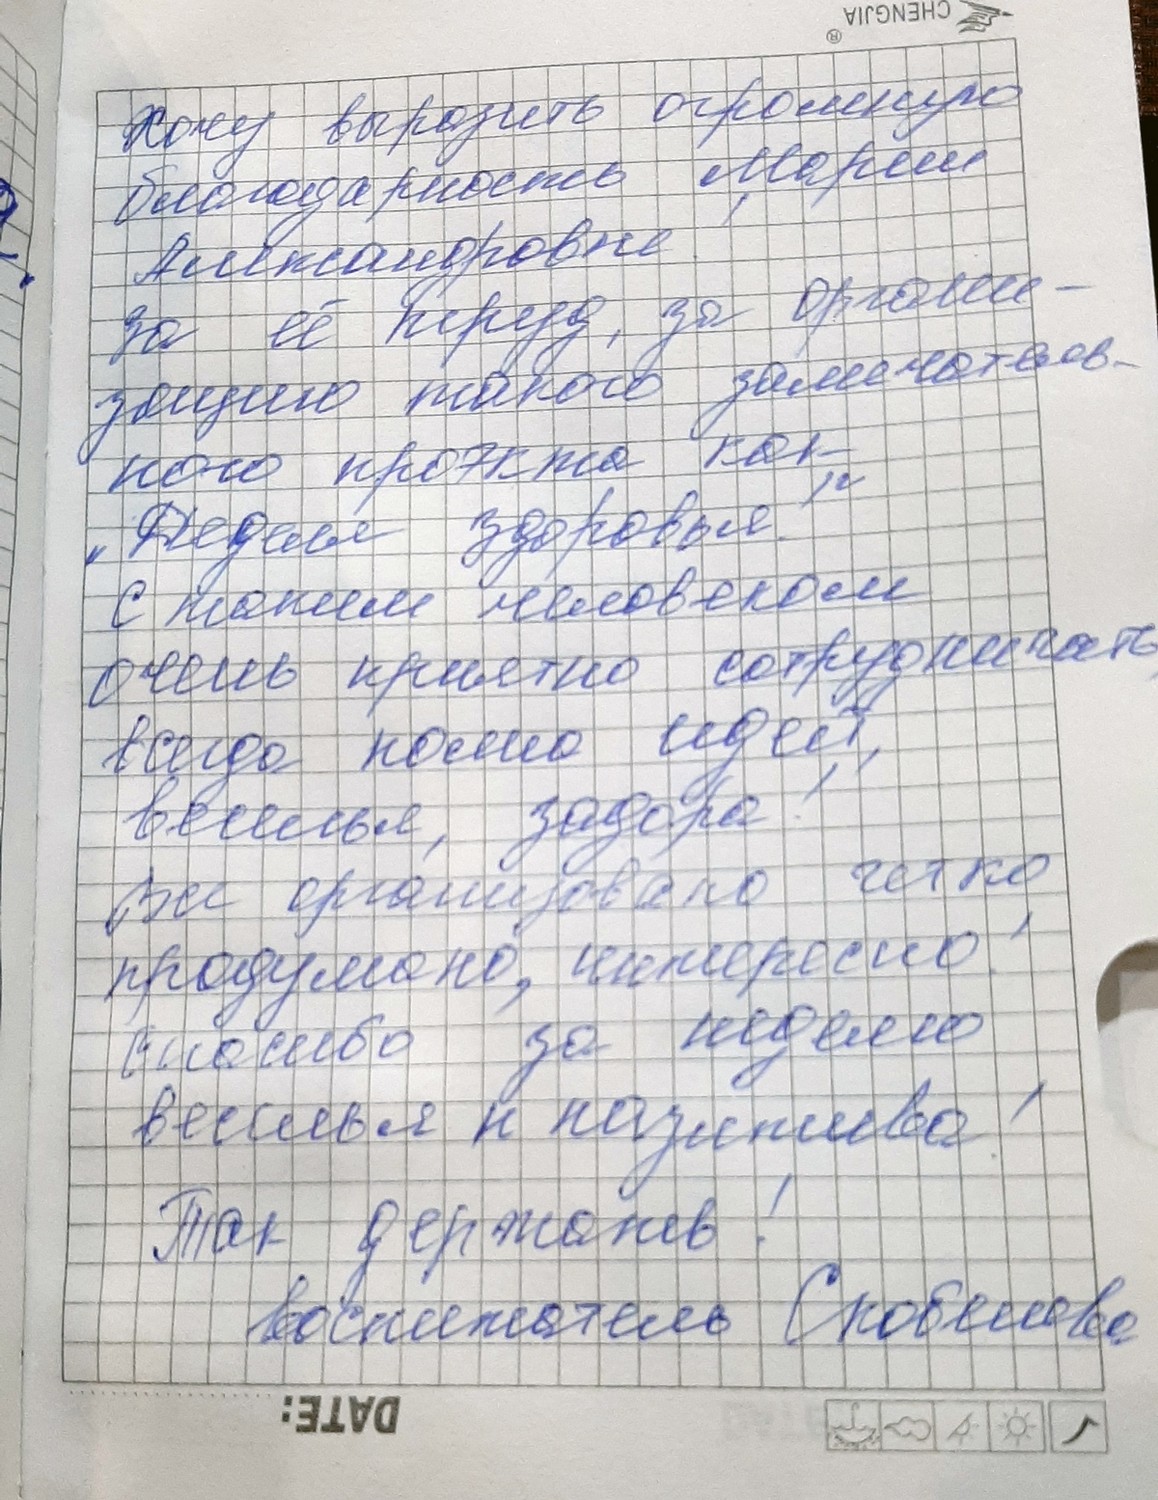 CHENGJIA
®
Хочу выразить огромную
благодарность Марии
Александровне!
за её труд, за органи-
зацию такого замечатель-
ного проэкта как
„Неделя здоровья!"
С таким человеком
очень приятно сотрудничать,
всегда полна идей,
веселья, задора!
Все организовано четко
продумано, интересно!
Спасибо за неделю
веселья и позитива!
Так держать!
Воспитатель Скобелева
DATE: